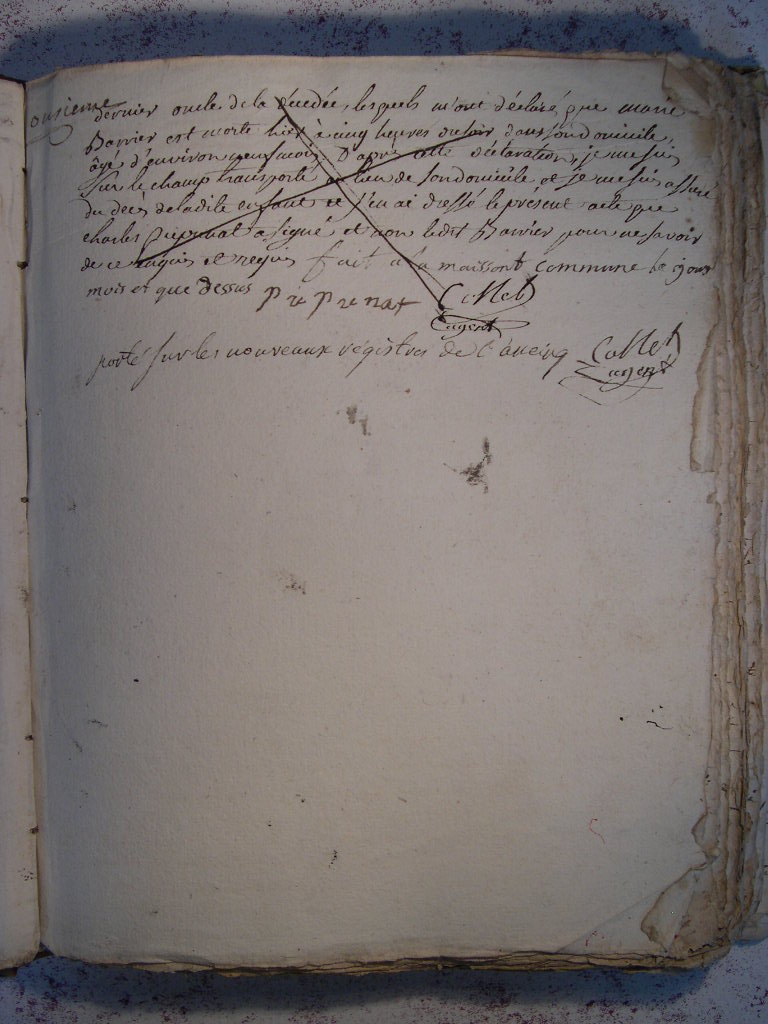 onsieme
dernier oncle de la décedée, lesquels m'ont déclaré que marie
Barrier est morte hier à cinq heures du soir dans son domicile,
âgé d'environ neuf mois. D'après cette déclaration, je me suis
sur le champ transporté au lieu de son domicile, et je me suis assuré
du decès de la dite enfant et j'en ai dressé le present acte que
charles Prepinat a signé et non ledit Barrier pour ne savoir
de ce enquis et requis fait a la maisson commune le jour
mois et que dessus Pre Pre nat Collet
L'agent
porté sur les nouveaux régistres de l'an cinq Collet
L'agent